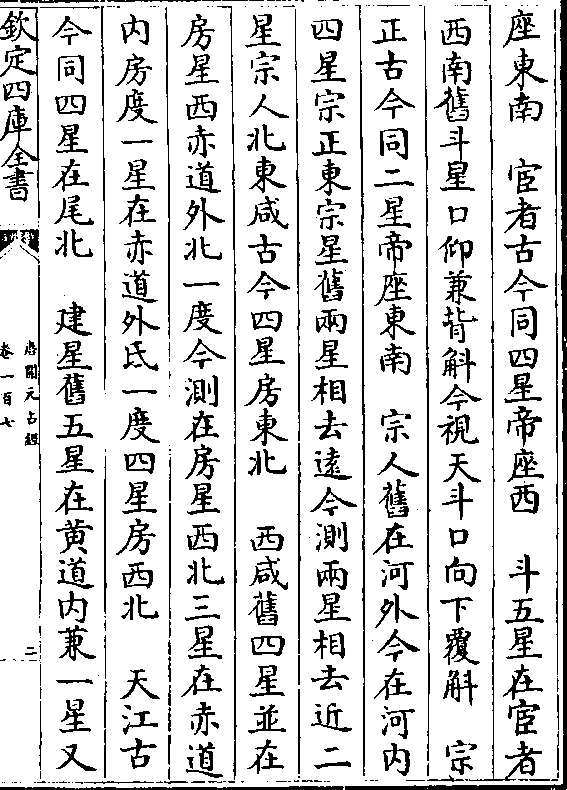 座東南　宦者古今同四星帝座西　斗五星在宦者
西南舊斗星口仰兼背斛今視天斗口向下覆斛　宗
正古今同二星帝座東南　宗人舊在河外今在河内
四星宗正東宗星舊兩星相去遠今測兩星相去近二
星宗人北東咸古今四星房東北　西咸舊四星並在
房星西赤道外北一度今測在房星西北三星在赤道
内房度一星在赤道外氐一度四星房西北　天江古
今同四星在尾北　建星舊五星在黄道内兼一星又
欽定四庫全書
唐開元占經
卷一百七
二